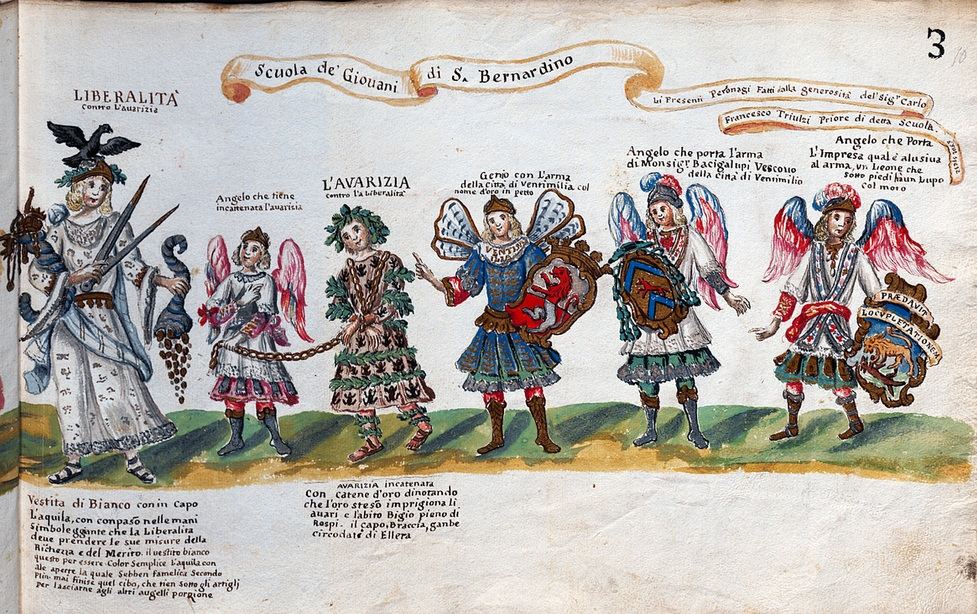 3
10
Scuola de' Giovani di S. Bernardino
Li Presenti Peronagi Fatti dalla generosità del Sigr Carlo
Francesco Triulzi Priore di detta Scuola.
LIBERALITA'
contro L'auarizia
Angelo che tiene
incatenata l'auarizia
L'AVARIZIA
contro l'a Liberalita
Genio con L'arma
della Città di Venrimilia col
nome d'oro in petto
Angelo che porta l'arma
di Monsigr Bacigalupi Vescouo
della città di Ventimilio
Angelo che Porta
L'Impresa qual è alusiua
al arma, un Leone che
sotto piedi hà un Lupo
col moto
PRÆDAVIT
LOCVPLETATIONEM
Vestita di Bianco con in Capo
L'aquila, con conpaso nelle mani
simboleggante che la Liberalita
deue prendere le sue misure della
Richezza e del Merito. il vestito bianco
questo per essere Color Semplice L'aquila con
ale aperte la quale Sebben famelica Secondo
Plin. mai finise quel cibo, che tien sotto gli artigli
per lasciarne agli altri augelli porzione
AVARIZIA incatenata
Con catene d'oro dinotando
che l'oro steso imprigiona li
auari e l'abito Bigio pieno di
Rospi. il capo, Braccia, ganbe
circodate di Ellera